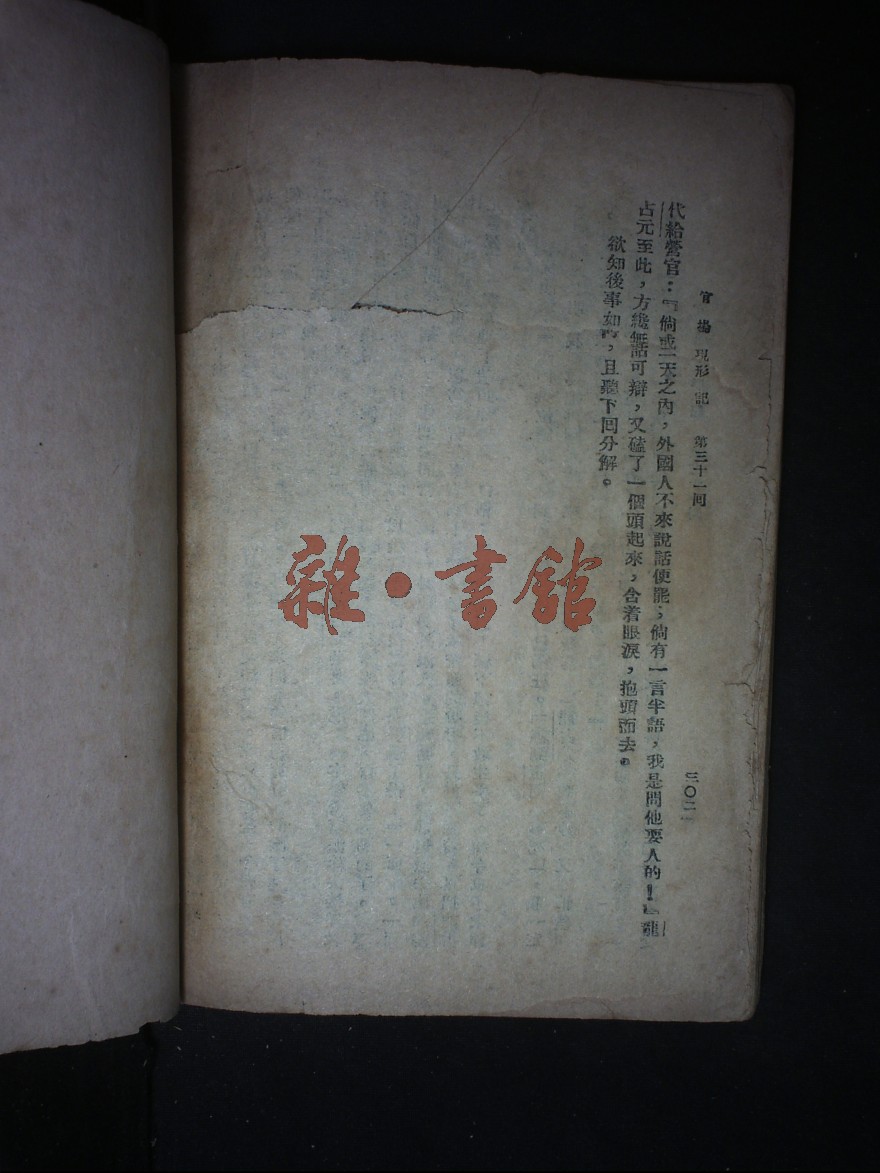 官場現形記　第三十一回
三〇二
代給營官：『倘或一天之內，外國人不來說話便罷；倘有一言半語，我是問他要人的！』龍
占元至此，方纔無話可辯，又磕了一個頭起來，含着眼淚，抱頭而去。
欲知後事如何，且聽下回分解。
雜・書館